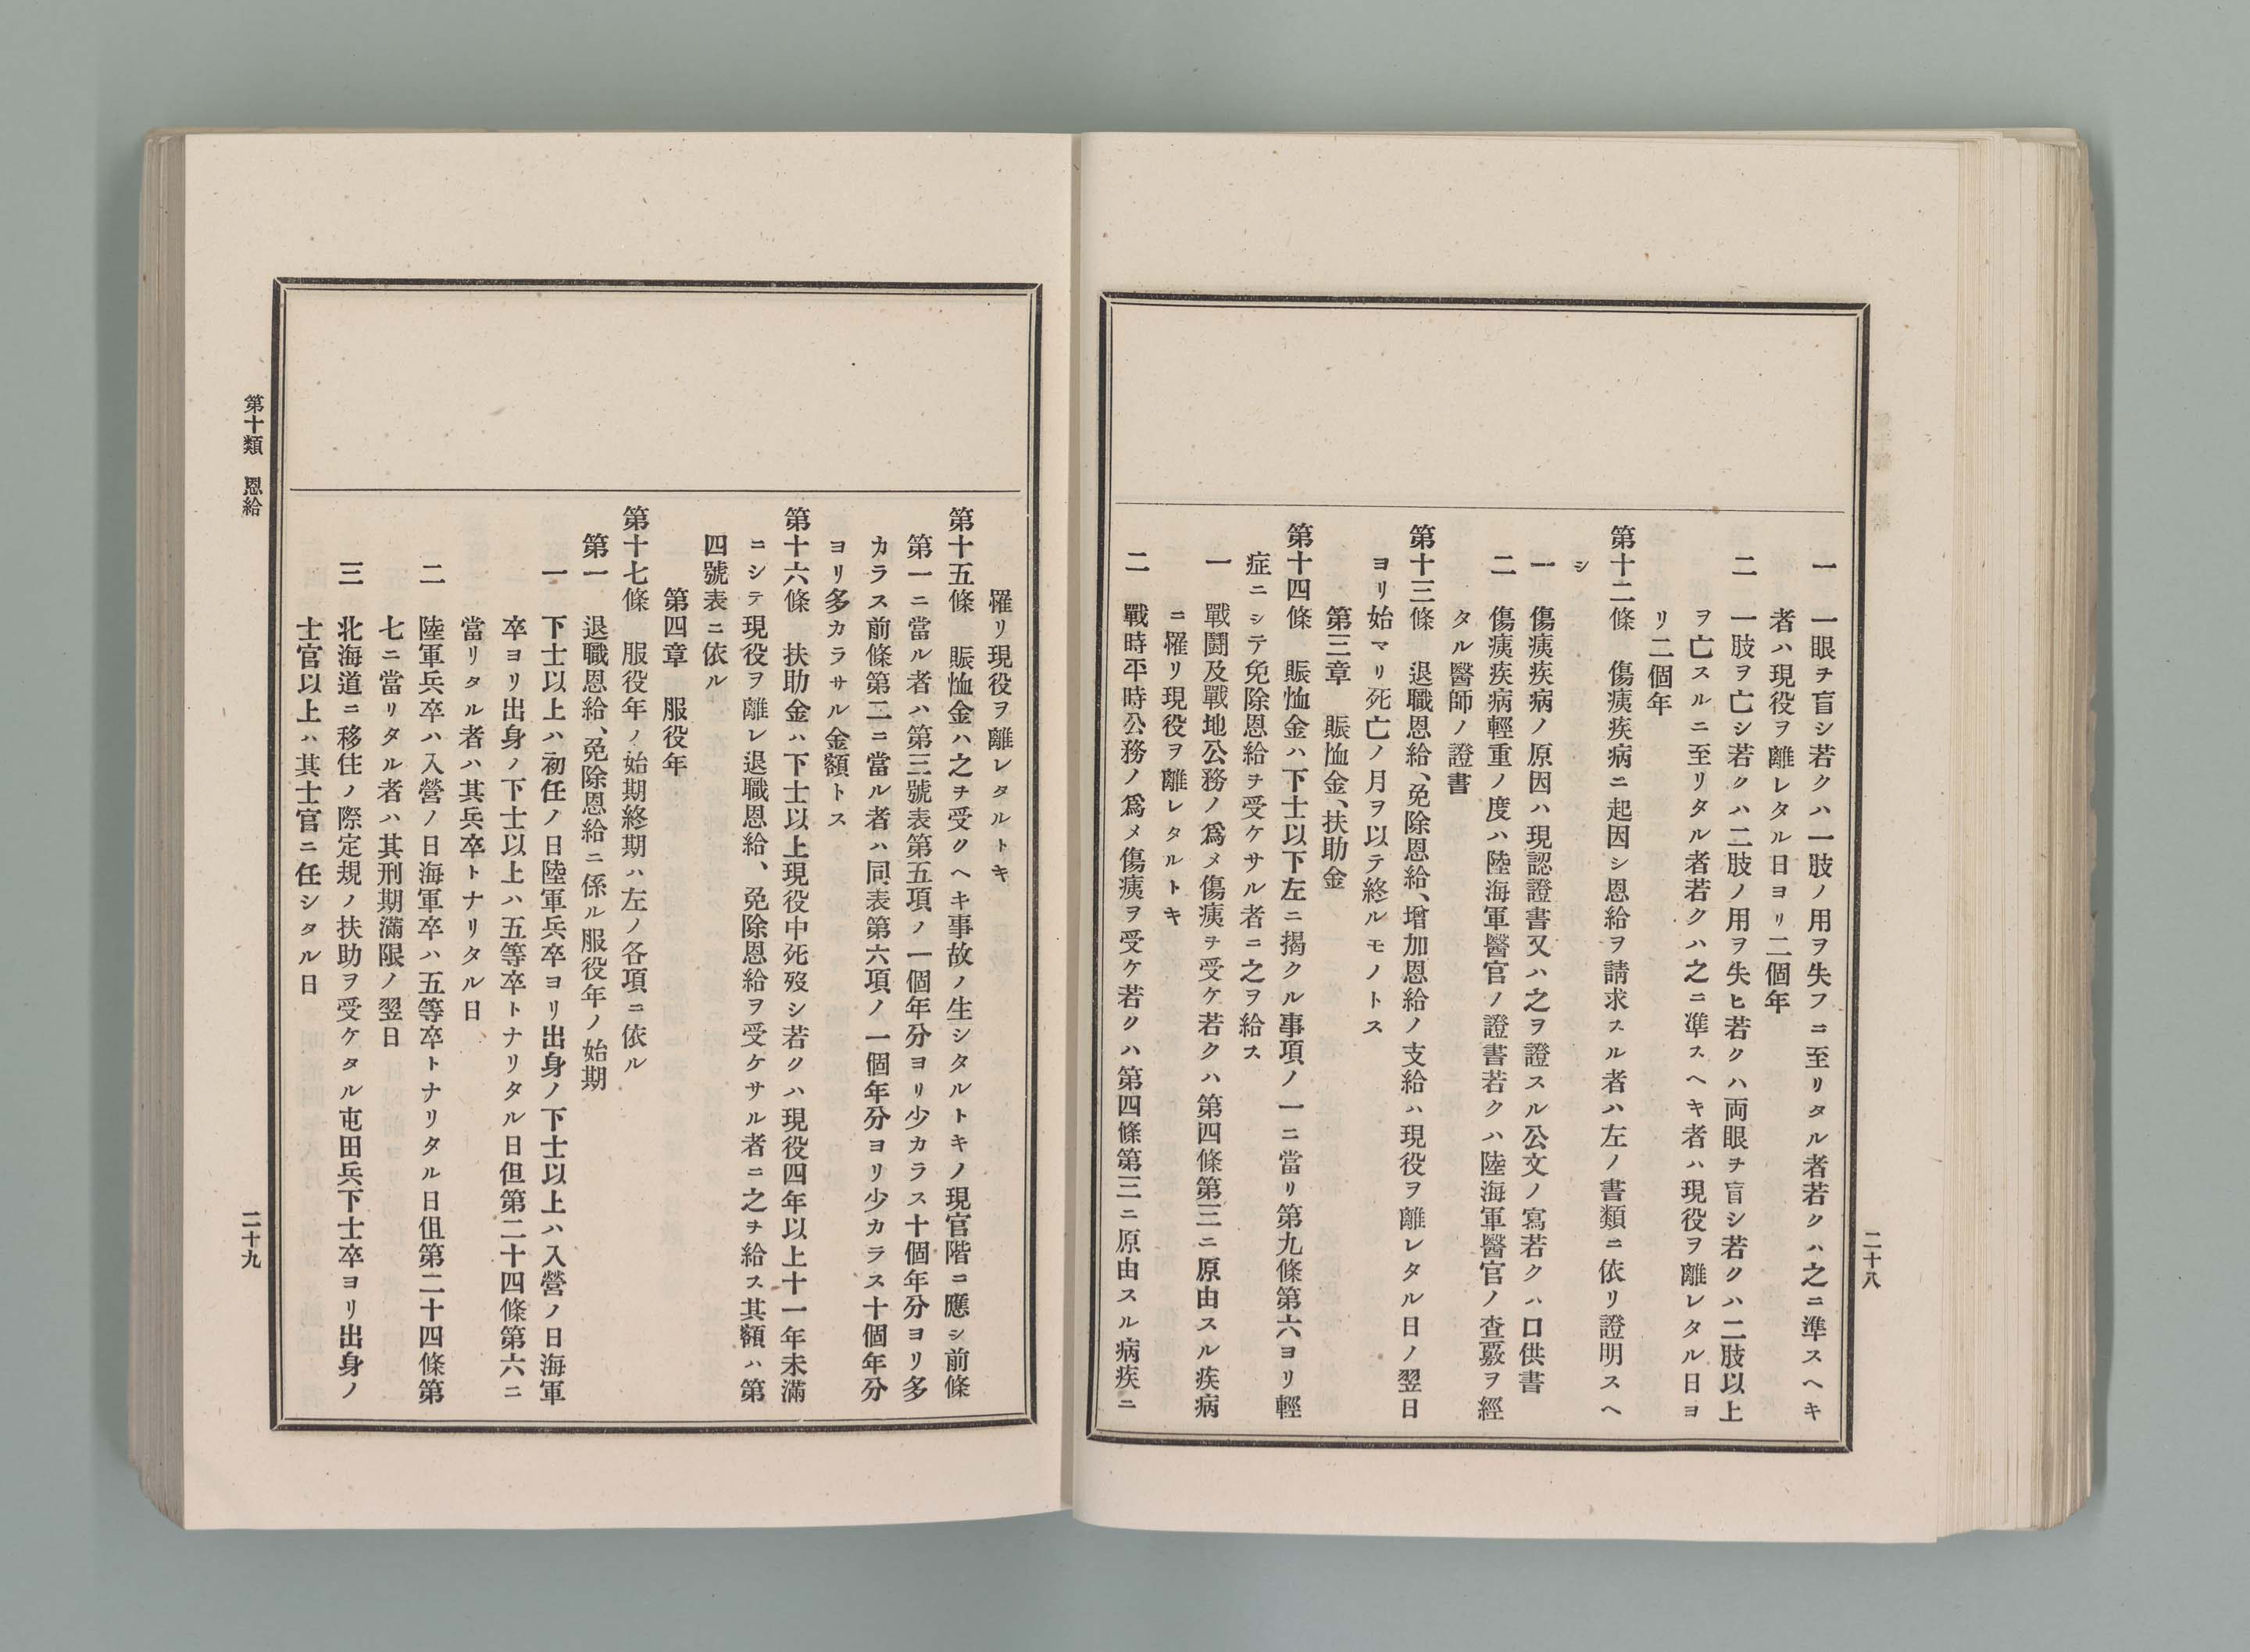 一　一眼ヲ盲シ若クハ一肢ノ用ヲ失フニ至リタル者若クハ之ニ準スヘキ
者ハ現役ヲ離レタル日ヨリ二個年
二　一肢ヲ亡シ若クハ二肢ノ用ヲ失ヒ若クハ両眼ヲ盲シ若クハ二肢以上
ヲ亡スルニ至リタル者若クハ之ニ準スヘキ者ハ現役ヲ離レタル日ヨ
リ二個年
第十二條　傷痍疾病ニ起因シ恩給ヲ請求スル者ハ左ノ書類ニ依リ證明スヘ
シ
一　傷痍疾病ノ原因ハ現認證書又ハ之ヲ證スル公文ノ寫若クハ口供書
二　傷痍疾病輕重ノ度ハ陸海軍醫官ノ證書若クハ陸海軍醫官ノ查覈ヲ經
タル醫師ノ證書
第十三條　退職恩給、免除恩給、增加恩給ノ支給ハ現役ヲ離レタル日ノ翌日
ヨリ始マリ死亡ノ月ヲ以テ終ルモノトス
第三章　賑恤金、扶助金
第十四條　賑恤金ハ下士以下左ニ揭クル事項ノ一ニ當リ第九條第六ヨリ輕
症ニシテ免除恩給ヲ受ケサル者ニ之ヲ給ス
一　戰鬪及戰地公務ノ爲メ傷痍ヲ受ケ若クハ第四條第三ニ原由スル疾病
ニ罹リ現役ヲ離レタルトキ
二　戰時平時公務ノ爲メ傷痍ヲ受ケ若クハ第四條第三ニ原由スル病疾ニ
二十八
罹リ現役ヲ離レタルトキ
第十五條　賑恤金ハ之ヲ受クヘキ事故ノ生シタルトキノ現官階ニ應シ前條
第一ニ當ル者ハ第三號表第五項ノ一個年分ヨリ少カラス十個年分ヨリ多
カラス前條第二ニ當ル者ハ同表第六項ノ一個年分ヨリ少カラス十個年分
ヨリ多カラサル金額トス
第十六條　扶助金ハ下士以上現役中死歿シ若クハ現役四年以上十一年未滿
ニシテ現役ヲ離レ退職恩給、免除恩給ヲ受ケサル者ニ之ヲ給ス其額ハ第
四號表ニ依ル
第四章　服役年
第十七條　服役年ノ始期終期ハ左ノ各項ニ依ル
第一　退職恩給、免除恩給ニ係ル服役年ノ始期
一　下士以上ハ初任ノ日陸軍兵卒ヨリ出身ノ下士以上ハ入營ノ日海軍
卒ヨリ出身ノ下士以上ハ五等卒トナリタル日但第二十四條第六ニ
當リタル者ハ其兵卒トナリタル日
二　陸軍兵卒ハ入營ノ日海軍卒ハ五等卒トナリタル日但第二十四條第
七ニ當リタル者ハ其刑期滿限ノ翌日
三　北海道ニ移住ノ際定規ノ扶助ヲ受ケタル屯田兵下士卒ヨリ出身ノ
士官以上ハ其士官ニ任シタル日
第十類　恩給
二十九